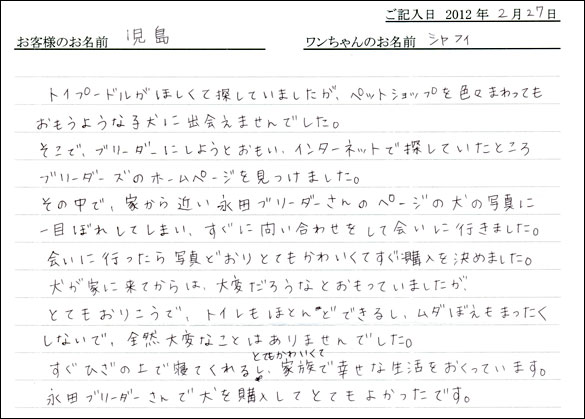 ご記入日 2012年2月27日
お客様のお名前 児島 ワンちゃんのお名前 シャフィ
トイプードルがほしくて探していましたが、ペットショップを色々まわっても
おもうような子犬に出会えませんでした。
そこで、ブリーダーにしようとおもい、インターネットで探していたところ
ブリーダーズのホームページを見つけました。
その中で、家から近い永田ブリーダーさんのページの犬の写真に
一目ぼれしてしまい、すぐに問い合わせをして会いに行きました。
会いに行ったら写真どおりとてもかわいくてすぐ購入を決めました。
犬が家に来てからは、大変だろうなとおもっていましたが、
とてもおりこうで、トイレもほとんどできるし、ムダぼえもまったく
しないで、全然大変なことはありませんでした。
すぐひざの上で寝てくれるし、とてもかわいくて家族で幸せな生活をおくっています。
永田ブリーダーさんで犬を購入してとてもよかったです。